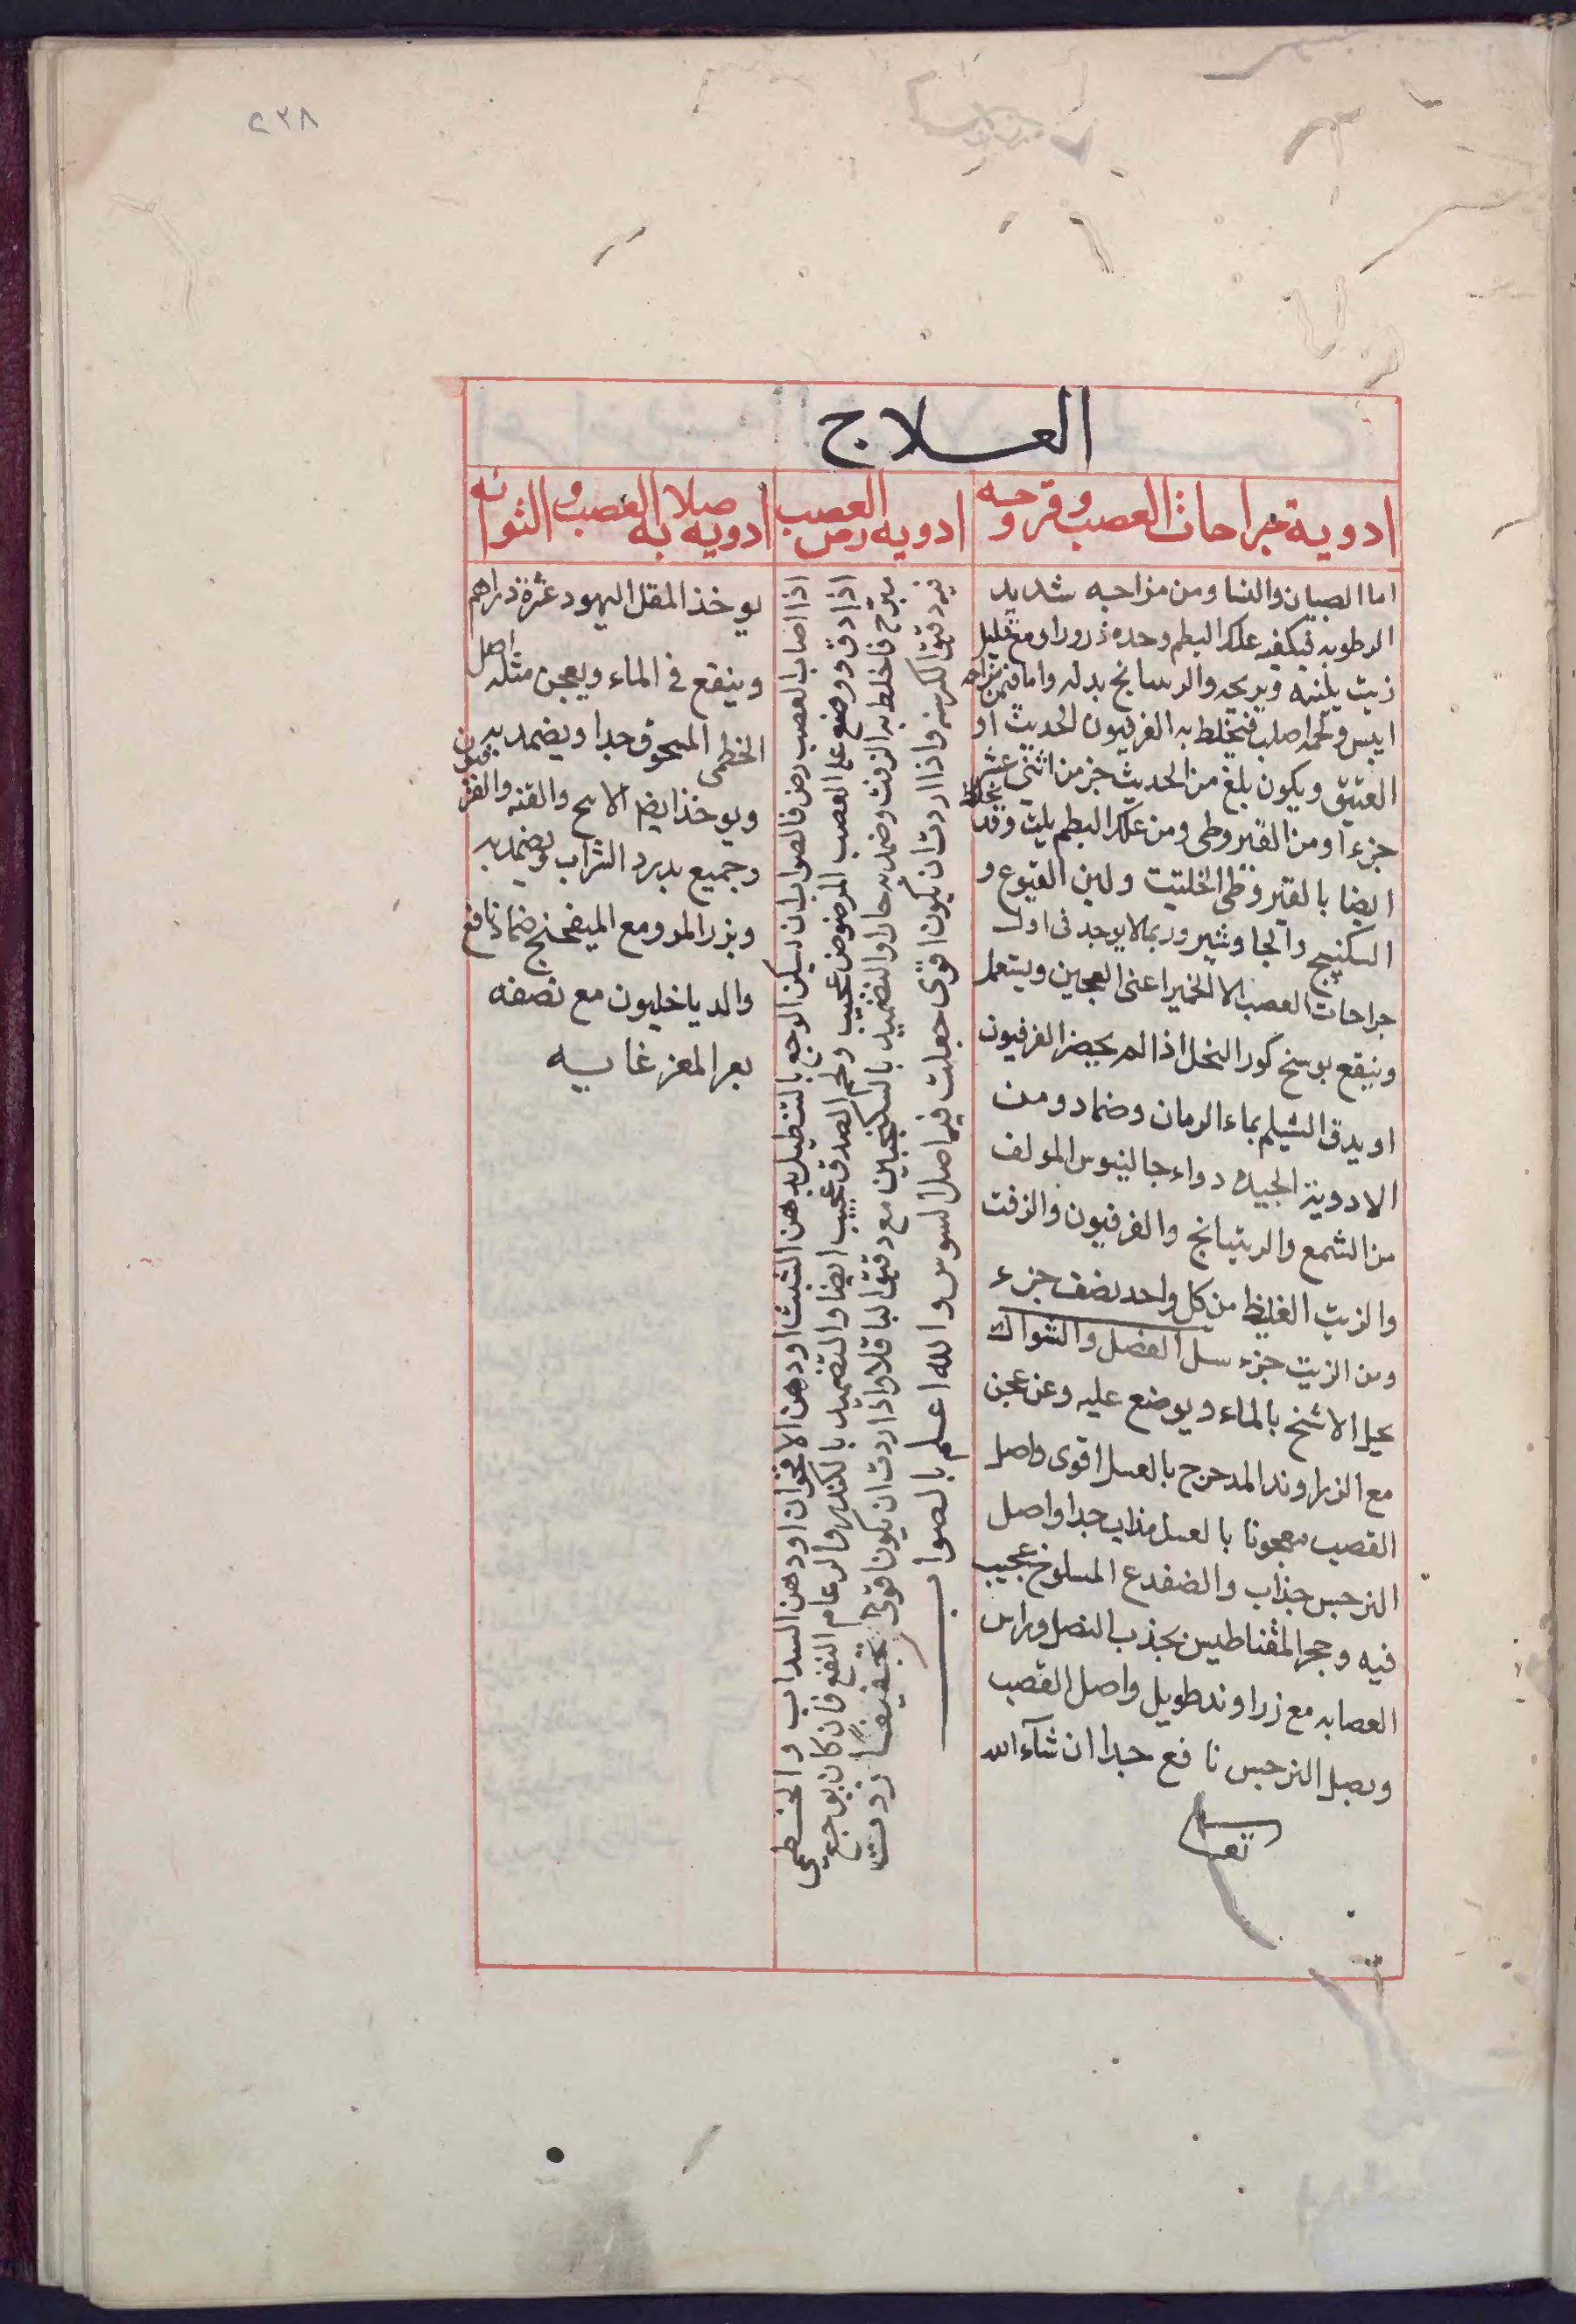 ٢٣٨
العلاج
ادوية جراحات العصب وقروحه
اما الصبيان والنسا ومن مزاجه شديد
الرطوبه فيكفيه علك البطم وحده ذرورا او مع قليل
زيت يلينه ويريحه والرسانج بدله واما فمن مزاجه
ايبس ولحمه اصلب فيخلط به الفرفيون الحديث او
العتيق ويكون بلغ من الحديث جز من اثنى عشر
جزءا ومن القيروطى ومن علك البطم يلث وقد يخلط
ايضا بالقيروطى الحلتيت ولبن اليتوع و
السكنبيج والجاوشير وربما لا يوجد فى اول
جراحات العصب الا الخمير اعنى العجين ويستعمل
وينقع بوسخ كور النحل اذا لم يحضر الفرفيون
او يدق الشيلم بماء الرمان وضماد ومن
الادوية الجيده دواء جالينوس المولف
من الشمع والريتيانج والفرفيون والزفت
والزيت الغليظ من كل واحد نصف جزء
ومن الزيت جزء سل الفصل والشواك
يحل الاشنج بالماء ويوضع عليه وعن عجن
مع الزراوند المدحرج بالعسل اقوى واصل
القصب معجونا بالعسل مذاب جدا واصل
النرجس جذاب والضفدع المسلوخ عجيب
فيه وحجر المقناطيس يجذب النصل وراس
العصابه مع زراوند طويل واصل القصب
وبصل النرجس نافع جدا ان شآء الله
تعالى
ادويه رض العصب
اذا اصاب العصب رض فالصواب ان يسكن الوجع بالتنطيل بدهن الشبث او دهن الاقحوان او دهن السداب والخطمى
اذا دق ووضع على العصب المرضوض عجيب ولحم الصدق عجيب ايضا والتضميد بالكندر والرعام النفع فان كان بوجع
مبرح فاخلط به الزفت وضمد به حارا والتضميد بالسكنجبين مع دقيق الباقلا واذا اردت ان يكون اقوى تجفيفا زدت
فيه دقيق الكرسنه واذا اردت ان يكون اقوى جعلت فيه اصل السوس والله اعلم بالصواب
ادويه صلابه العصب والتوائه
يوخذ المقل اليهود عشرة دراهم
وينقع فى الماء ويعجن مثله اصل
الخطمى المسحوق جدا ويضمد به
ويوخذ ايضا الاسح والقنه والفرفيون
وجميع بدرد الشراب ويضمد به
وبزر المرو مع الميفختج ضماد نافع
والدياخليون مع نصفه
بعر المعز غايه